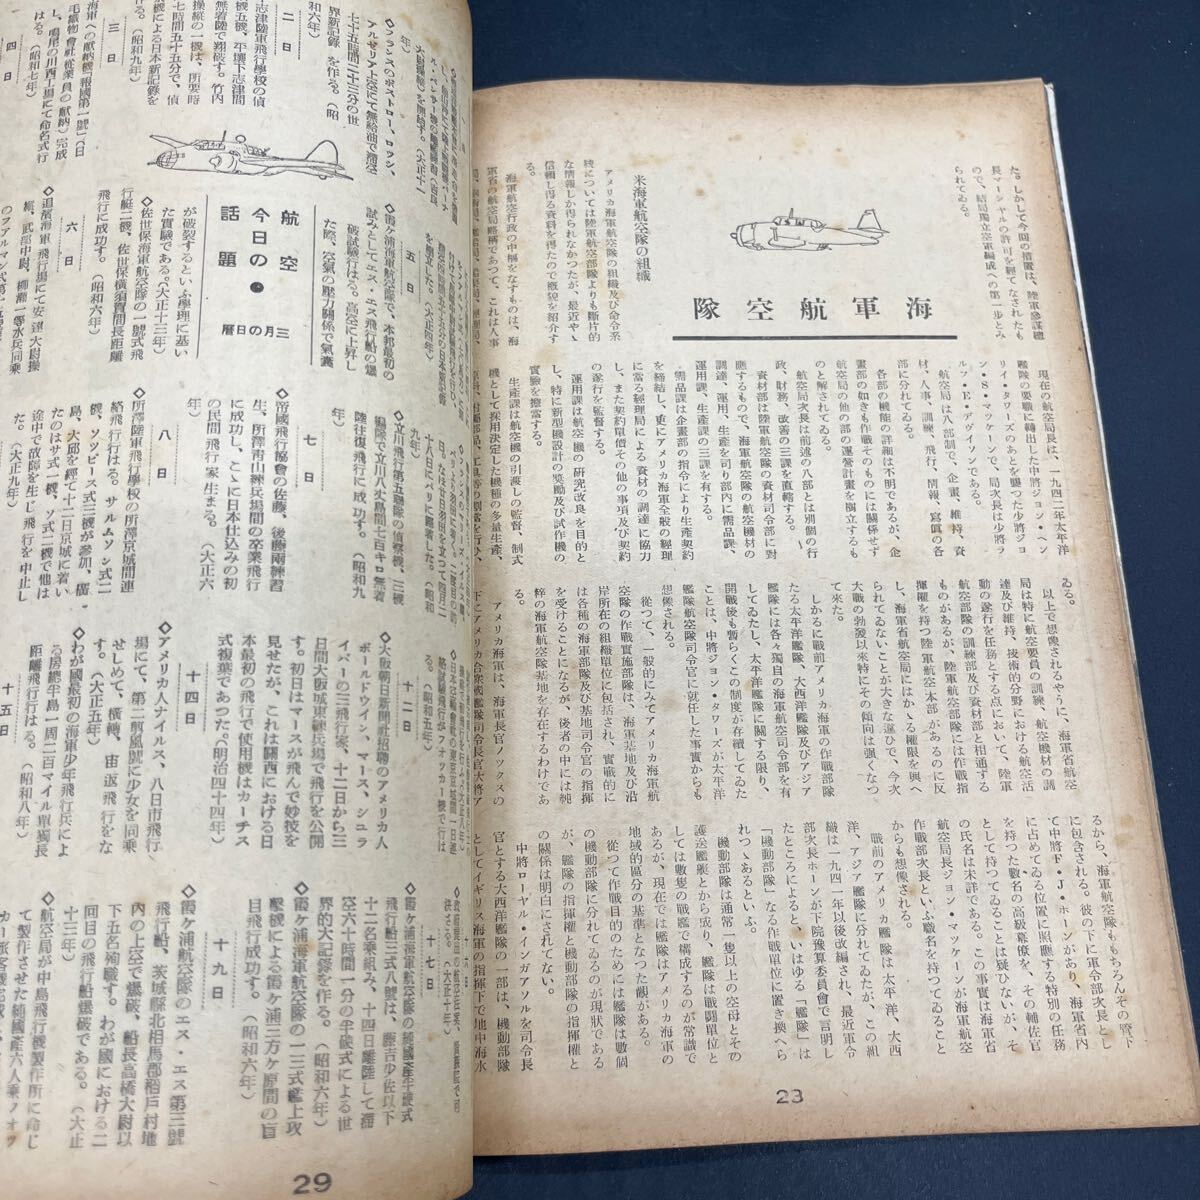 た。しかして今回の措置は、陸軍參謀總
長マーシヤルの許可を經てなされたも
ので、結局獨立空軍編成への第一歩とみ
られてゐる。
海軍航空隊
米海軍航空隊の組織
アメリカ海軍航空隊の組織及び命令系
統については陸軍航空部隊よりも斷片的
な情報しか得られなかつたが、最近やゝ
信頼し得る資料を得たので概貌を紹介す
る。
海軍航空行政の中樞をなすものは、海
軍省の航空局略稱であつて、これは人事
現在の航空局長は、一九四二年太平洋
艦隊の要職に轉出した中將ジョン・ヘン
リイ・タワーズのあとを襲つた少將ジョ
ン・S・マツケーンで、局次長は少將ラ
ルフ・E・デヴイソンである。
航空局は八部制で、企畫、維持、資
材、人事、訓練、飛行、情報、寫眞の各
部に分れてゐる。
各部の機能の詳細は不明であるが、企
畫部の如きも作戰そのものには關係せず
航空局の他の部の運營計畫を樹立するも
のと解されてゐる。
航空局次長は前述の八部とは別個の行
政、財務、改善の三課を直轄する。
資材部は陸軍航空隊の資材司令部に對
應するもので、海軍航空隊の航空機材の
調達、運用、生產を司り部内に需品課、
運用課、生產課の三課を有する。
需品課は企畫部の指令により生產契約
を締結し、更にアメリカ海軍全般の經理
に當る經理局による資材の調達に協力
し、また契約單價その他の事項及び契約
の遂行を監督する。
運用課は航空機の研究改良を目的と
し、特に新型機設計の奬勵及び試作機の
實驗を擔當する。
生產課は航空機の引渡しの監督、制式
機として採用決定した機種の多量生產、
ゐる。
以上で想像されるやうに、海軍省航空
局は特に航空要員の訓練、航空機材の調
達及び維持、技術的分野における航空活
動の遂行を任務とする点において、陸軍
航空部隊の訓練部及び資材部と相通ずる
ものがあるが、陸軍航空部隊には作戰指
揮權を持つ陸軍航空本部があるのに反
し、海軍省航空局にはかゝる權限を與へ
られてゐないことが大きな違ひで、今次
大戰の勃發以來特にその傾向は强くなつ
て來た。
しかるに戰前アメリカ海軍の作戰部隊
たる太平洋艦隊、大西洋艦隊及びアジア
艦隊には各々獨自の海軍航空司令部を有
してゐたし、太平洋艦隊に關する限り、
開戰後も暫らくこの制度が存續してゐた
ことは、中將ジョン・タワーズが太平洋
艦隊航空隊司令官に就任した事實からも
想像される。
從つて、一般的にみてアメリカ海軍航
空隊の作戰實施部隊は、海軍基地及び沿
岸所在の組織單位に包括され、實戰的に
は各種の海軍部隊及び基地司令官の指揮
を受けることになるが、後者の中には純
粹の海軍航空隊基地を存在するわけであ
る。
アメリカ海軍は、海軍長官ノツクスの
下にアメリカ合衆國艦隊司令長官大將ア
るから、海軍航空隊ももちろんその管下
に包含される。彼の下に軍令部次長とし
て中將F・J・ホーンがあり、海軍省内
に占めてゐる位置に照應する特別の任務
を持つた數名の高級幕僚を、その輔佐官
として持つてゐることは疑ひないが、そ
の氏名は未詳である。この事實は海軍省
航空局長ジョン・マツケーンが海軍航空
作戰部次長といふ職名を持つてゐること
からも想像される。
戰前のアメリカ艦隊は太平洋、大西
洋、アジア艦隊に分れてゐたが、この組
織は一九四一年以後改編され、最近軍令
部次長ホーンが下院豫算委員會で言明し
たところによると、いはゆる「艦隊」は
「機動部隊」なる作戰單位に置き換へら
れつゝある。
機動部隊は通常一隻以上の空母とその
護送艦艇とから成り、艦隊は戰鬪單位と
しては數隻の戰艦で構成するのが常識で
あるが、現在では艦隊はアメリカ海軍の
地域的區分の基準となつた觀がある。
從つて作戰目的のためには艦隊は數個
の機動部隊に分れてゐるのが現狀である
が、艦隊の指揮權と機動部隊の指揮權と
の關係は明白にされてない。
中將ローヤル・インガアソルを司令長
官とする大西洋艦隊の一部は、機動部隊
としてイギリス海軍の指揮下で地中海水
23
◇フランスのボストロー、ロッシ、
アルゼリア上空にて無給油で滯空
七十五時間二十三分の世
界新記錄を作る。(昭
和六年)
二日
志津陸軍飛行學校の偵
機五機、平壤下志津間
無着陸で翔破す。竹内
操縱の一機は、所要時
七時間五十五分で、偵
機による日本新記錄を
(昭和九年)
三日
海軍への獻納機「報國第一號」(日
毛織物會社從業員の獻納)完成
し、鳴尾の川西工場にて命名式行
はる。(昭和七年)
四日
五日
◇霞ヶ浦海軍航空隊で、本邦最初の
試みとしてエス・エス飛行船の爆
破試驗行はる。高空に上昇し
た際、空氣の壓力關係で氣囊
航空
今日の●
話題
三月の日曆
が破裂するといふ學理に基い
た實驗である。(大正十三年)
◇佐世保海軍航空隊の一號式飛
行艇二機、佐世保橫須賀間長距離
飛行に成功す。(昭和六年)
六日
◇追濱海軍飛行場にて安達大尉操
縱、武部中尉、柳瀨一等水兵同乘
◇立川飛行第五聯隊の偵察機、三機
編隊で立川八丈島間七百キロ無着
陸往復飛行に成功す。(昭和九
年)
七日
◇帝國飛行協會の佐藤、後藤兩練習
生、所澤靑山練兵場間の卒業飛行
に成功し、こゝに日本仕込みの初
の民間飛行家生まる。(大正六
年)
八日
◇所澤陸軍飛行學校の所澤京城間連
絡飛行行はる。サルムソン式二
機、ソツピース式三機が參加、廣
島、大邱を經て十二日京城に着い
たのはサ式一機、ソ式二機で他は
途中で故障を生じ飛行を中止し
た。(大正九年)
十二日
◇大阪朝日新聞社招聘のアメリカ人
ボールドウイン、マース、シユラ
イバーの三飛行家、十二日から三
日間大阪城東練兵場で飛行を公開
す。初日はマースが飛んで妙技を
見せたが、これは關西における日
本最初の飛行で使用機はカーチス
式複葉であつた。(明治四十四年)
十四日
◇アメリカ人ナイルス、八日市飛行
場にて、第二翦風號に少女を同乘
せしめて、橫轉、宙返飛行をな
す。(大正五年)
◇わが國最初の海軍少年飛行兵によ
る房總半島一周二百マイル單獨長
距離飛行行はる。(昭和八年)
十五日
十七日
◇霞ケ浦海軍航空隊の純國產半硬式
飛行船三式八號は、藤吉少佐以下
十二名乘組み、十四日離陸して滯
空六十時間一分の半硬式による世
界的大記錄を作る。(昭和六年)
◇霞ケ浦海軍航空隊の一三式艦上攻
擊機による霞ヶ浦三方ヶ原間の盲
目飛行成功す。(昭和六年)
十九日
◇霞ケ浦航空隊のエス・エス第三號
飛行船、茨城縣北相馬郡稻戶村地
内の上空で爆破、船長高橋大尉以
下五名殉職す。わが國における二
回目の飛行船爆破である。(大正
十三年)
◇航空局が中島飛行機製作所に命じ
て製作させた純國產六人乘フオツ
29